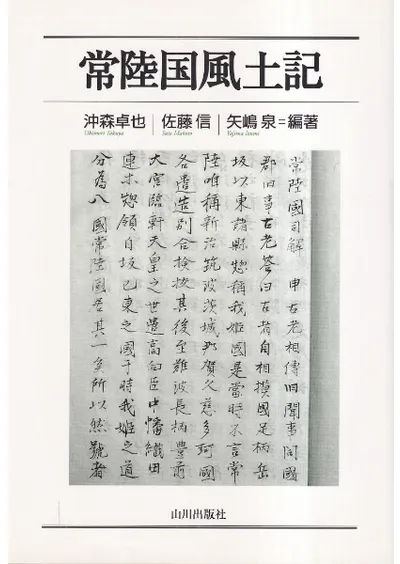 常陸国風土記
沖森卓也 佐藤 信 矢嶋 泉=編著
Okimori Takuya Sato Makoto Yajima Izumi
常陸國司解 申古老相傳旧聞事 問國
郡旧事古老荅曰古者自相摸國足柄岳
坂以東諸縣惣稱我姫國是當時不言常
陸唯稱新治筑波茨城那賀久慈多珂國
各遣造別令撿挍其後至難波長柄豊前
大宮臨軒天皇之世遣高向臣中幡織田
連等惣領自坂已東之國于時我姫之道
分為八國常陸國居其一矣所以然號者
山川出版社